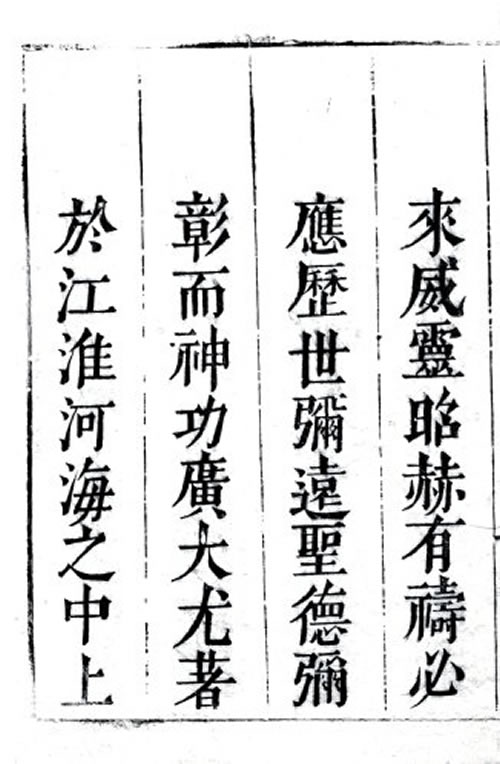 來威靈昭赫有禱必
應歷世彌遠聖德彌
彰而神功廣大尤著
於江淮河海之中上